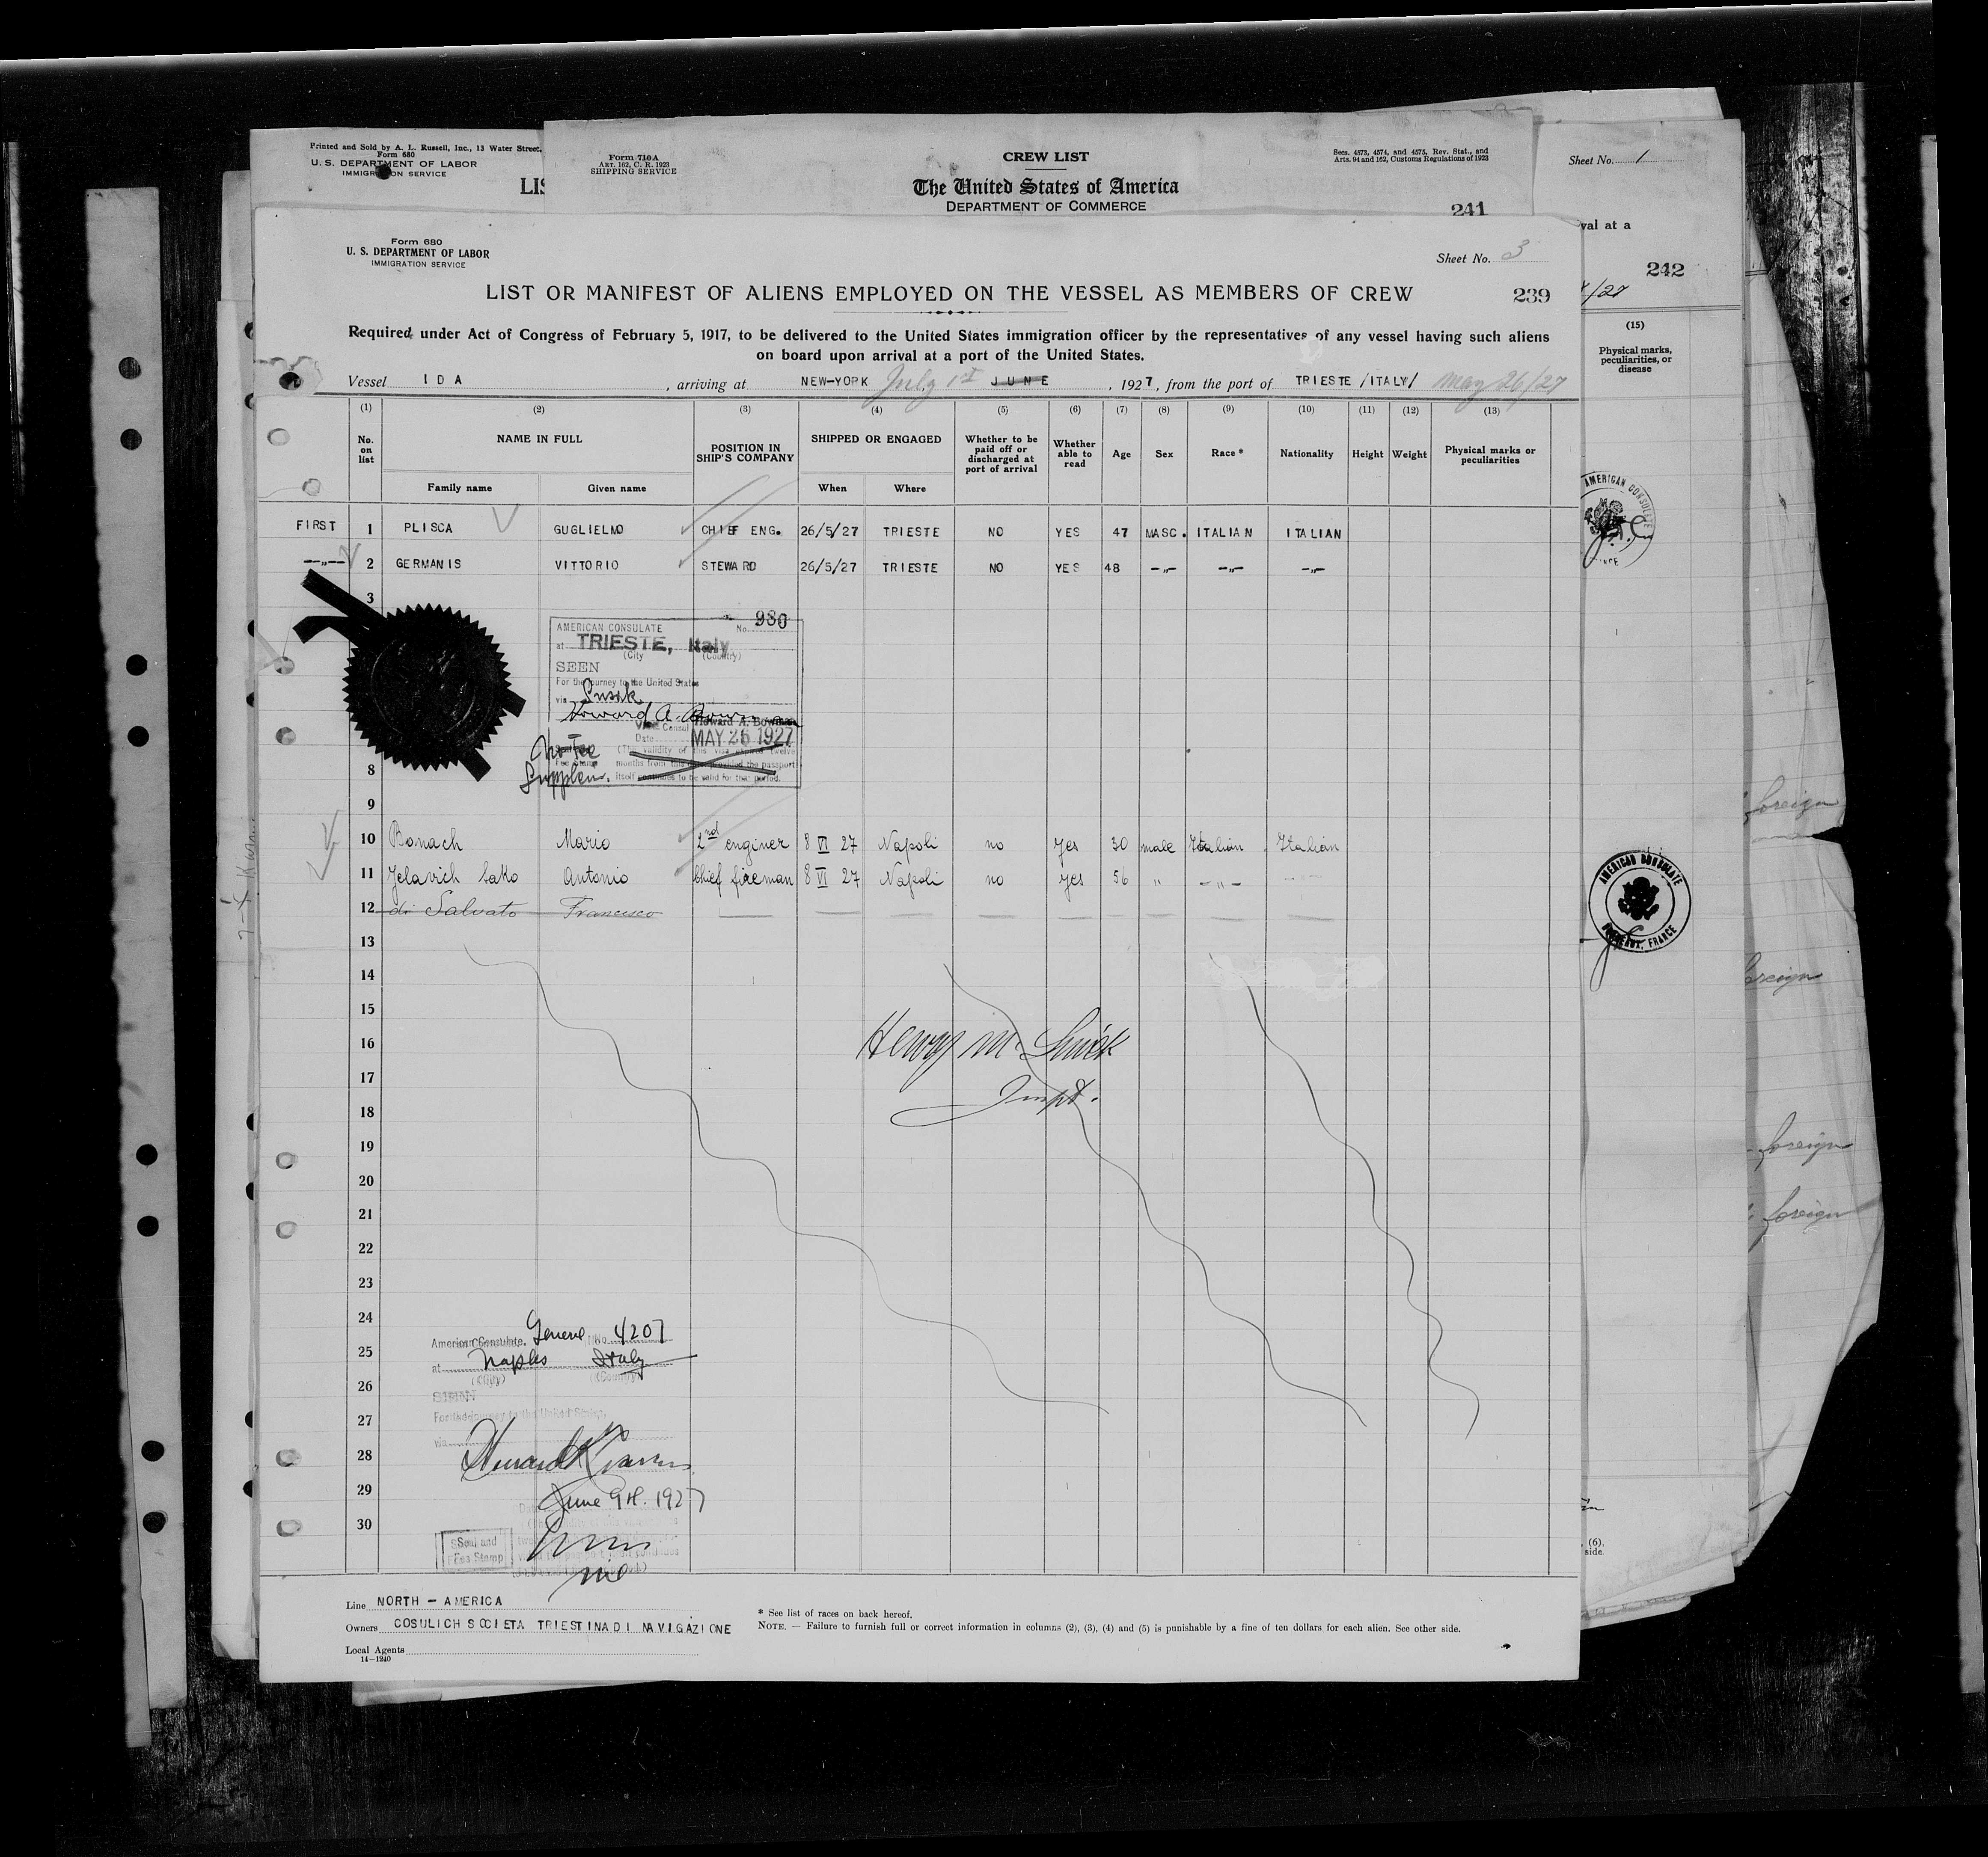 Printed and Sold by A. L. Russell, Inc., 13 Water Street,
Form 680
U. S. DEPARTMENT OF LABOR
IMMIGRATION SERVICE
LIS
Form 710A
ART. 162, C. R. 1923
SHIPPING SERVICE
CREW LIST
The United States of America
DEPARTMENT OF COMMERCE
Secs. 4573, 4574, and 4575, Rev. Stat., and
Arts. 94 and 162, Customs Regulations of 1923
241
Sheet No. 1
val at a
242
/27
(15)
Physical marks,
peculiarities, or
disease
Form 680
U. S. DEPARTMENT OF LABOR
IMMIGRATION SERVICE
Sheet No. 3
LIST OR MANIFEST OF ALIENS EMPLOYED ON THE VESSEL AS MEMBERS OF CREW
239
Required under Act of Congress of February 5, 1917, to be delivered to the United States immigration officer by the representatives of any vessel having such aliens
on board upon arrival at a port of the United States.
Vessel IDA , arriving at NEW-YORK July 1st JUNE , 1927, from the port of TRIESTE /ITALY/ May 26/27
(1) (2) (3) (4) (5) (6) (7) (8) (9) (10) (11) (12) (13)
No. on list NAME IN FULL POSITION IN SHIP'S COMPANY SHIPPED OR ENGAGED Whether to be paid off or discharged at port of arrival Whether able to read Age Sex Race * Nationality Height Weight Physical marks or peculiarities
Family name Given name When Where
FIRST 1 PLISCA GUGLIELMO CHIEF ENG. 26/5/27 TRIESTE NO YES 47 MASC. ITALIAN ITALIAN
--"-- 2 GERMANIS VITTORIO STEWARD 26/5/27 TRIESTE NO YES 48 -"- -"- -"-
3
AMERICAN CONSULATE No. 980
at TRIESTE, Italy
(City (Country)
SEEN
For the journey to the United States
via Susak
Howard A. Bowman
Vice Consul Howard A. Bowman
Date MAY 26 1927
No Fee
(The validity of this visa expires twelve
months from this date provided the passport
Supplem. itself continues to be valid for that period.
8
9
10 Bonach Mario 2nd enginer 8 VI 27 Napoli no yes 30 male Italian Italian
11 Jelavich Sako Antonio Chief fireman 8 VI 27 Napoli no yes 56 " -"-
12 di Salvato Francisco
13
14
15
16
17
18
19
20
21
22
23
24
25
26
27
28
29
30
Henry M.
Inspt.
American Consulate, General No. 4207
at Naples Italy
(City) (Country)
For the journey to the United States,
via
June 9th. 1927
Seal and
Fee Stamp
Line NORTH - AMERICA
Owners COSULICH SOCIETA TRIESTINA DI NAVIGAZIONE
Local Agents
14-1240
* See list of races on back hereof.
NOTE. — Failure to furnish full or correct information in columns (2), (3), (4) and (5) is punishable by a fine of ten dollars for each alien. See other side.
AMERICAN CONSULATE
AMERICAN CONSULATE
BORDEAUX, FRANCE
foreign
foreign
foreign
foreign
(6),
side.